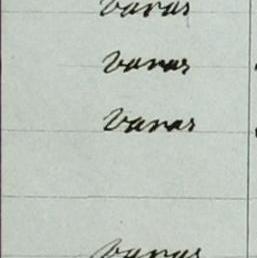 varas
varas
varas
varas